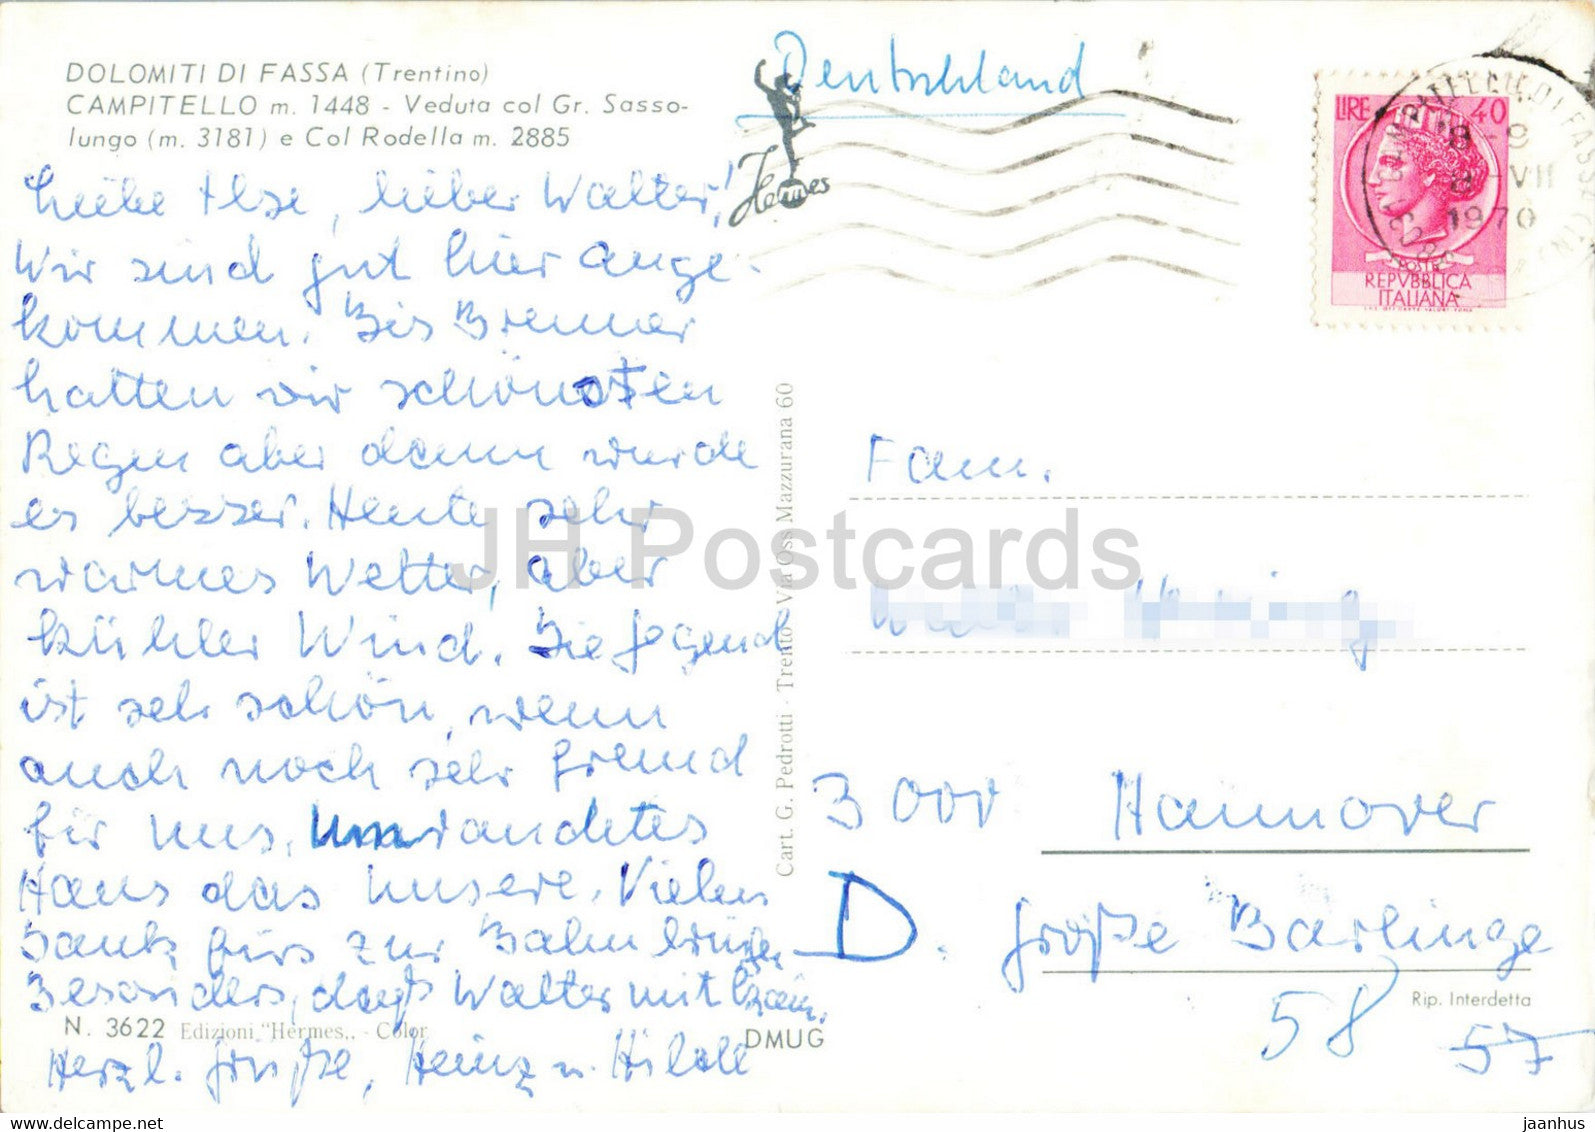 DOLOMITI DI FASSA (Trentino)
CAMPITELLO m. 1448 - Veduta col Gr. Sasso-
lungo (m. 3181) e Col Rodella m. 2885
Liebe Ilse, lieber Walter!
Wir sind gut hier ange-
kommen. Bis Brenner
hatten wir schönsten
Regen aber dann wurde
es besser. Heute sehr
warmes Wetter, aber
kühler Wind. Die Gegend
ist sehr schön, wenn
auch noch sehr fremd
für uns,
Haus das unsere. Vielen
Dank fürs zur Bahn bringen
Besonders, daß Walter mit kam.
Herzl. Grüße, Heinz u. Hilde
N. 3622 Edizioni "Hermes„ - Color
DMUG
Cart. G. Pedrotti - Trento - Via Oss Mazzurana 60
Deutschland
Hermes
LIRE 40
REPVBBLICA
ITALIANA
CAMPITELLO DI FASSA
8-9
8-VII
1970
Fam.
3000 Hannover
D. Große Barlinge
58 57
Rip. Interdetta
JH Postcards
www.delcampe.net
jaanhus